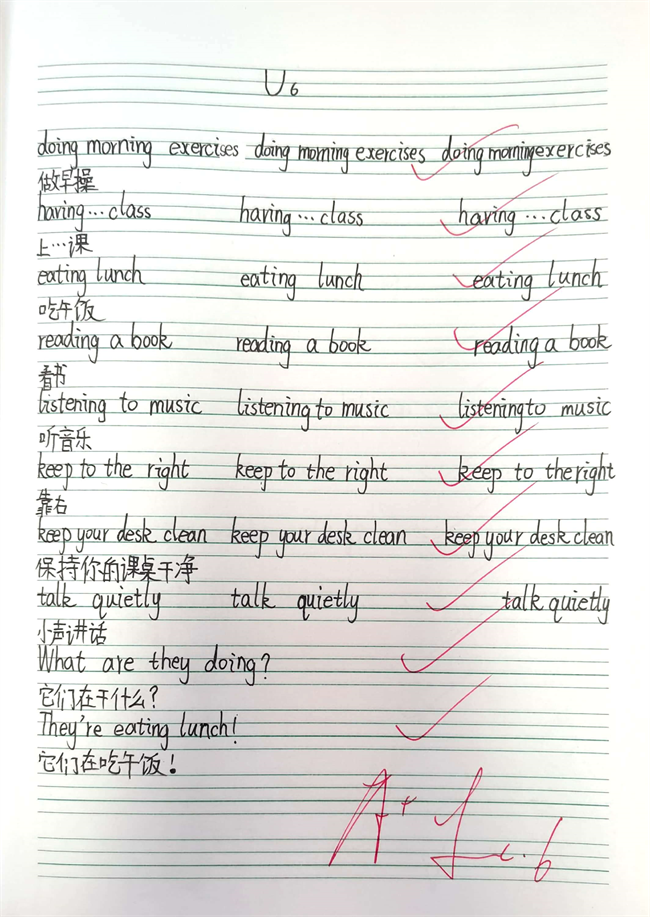 U6
doing morning exercises doing morning exercises doing morning exercises
做早操
having…class having…class having…class
上…课
eating lunch eating lunch eating lunch
吃午饭
reading a book reading a book reading a book
看书
listening to music listening to music listening to music
听音乐
keep to the right keep to the right keep to the right
靠右
keep your desk clean keep your desk clean keep your desk clean
保持你的课桌干净
talk quietly talk quietly talk quietly
小声讲话
What are they doing?
它们在干什么?
They're eating lunch!
它们在吃午饭!
A+